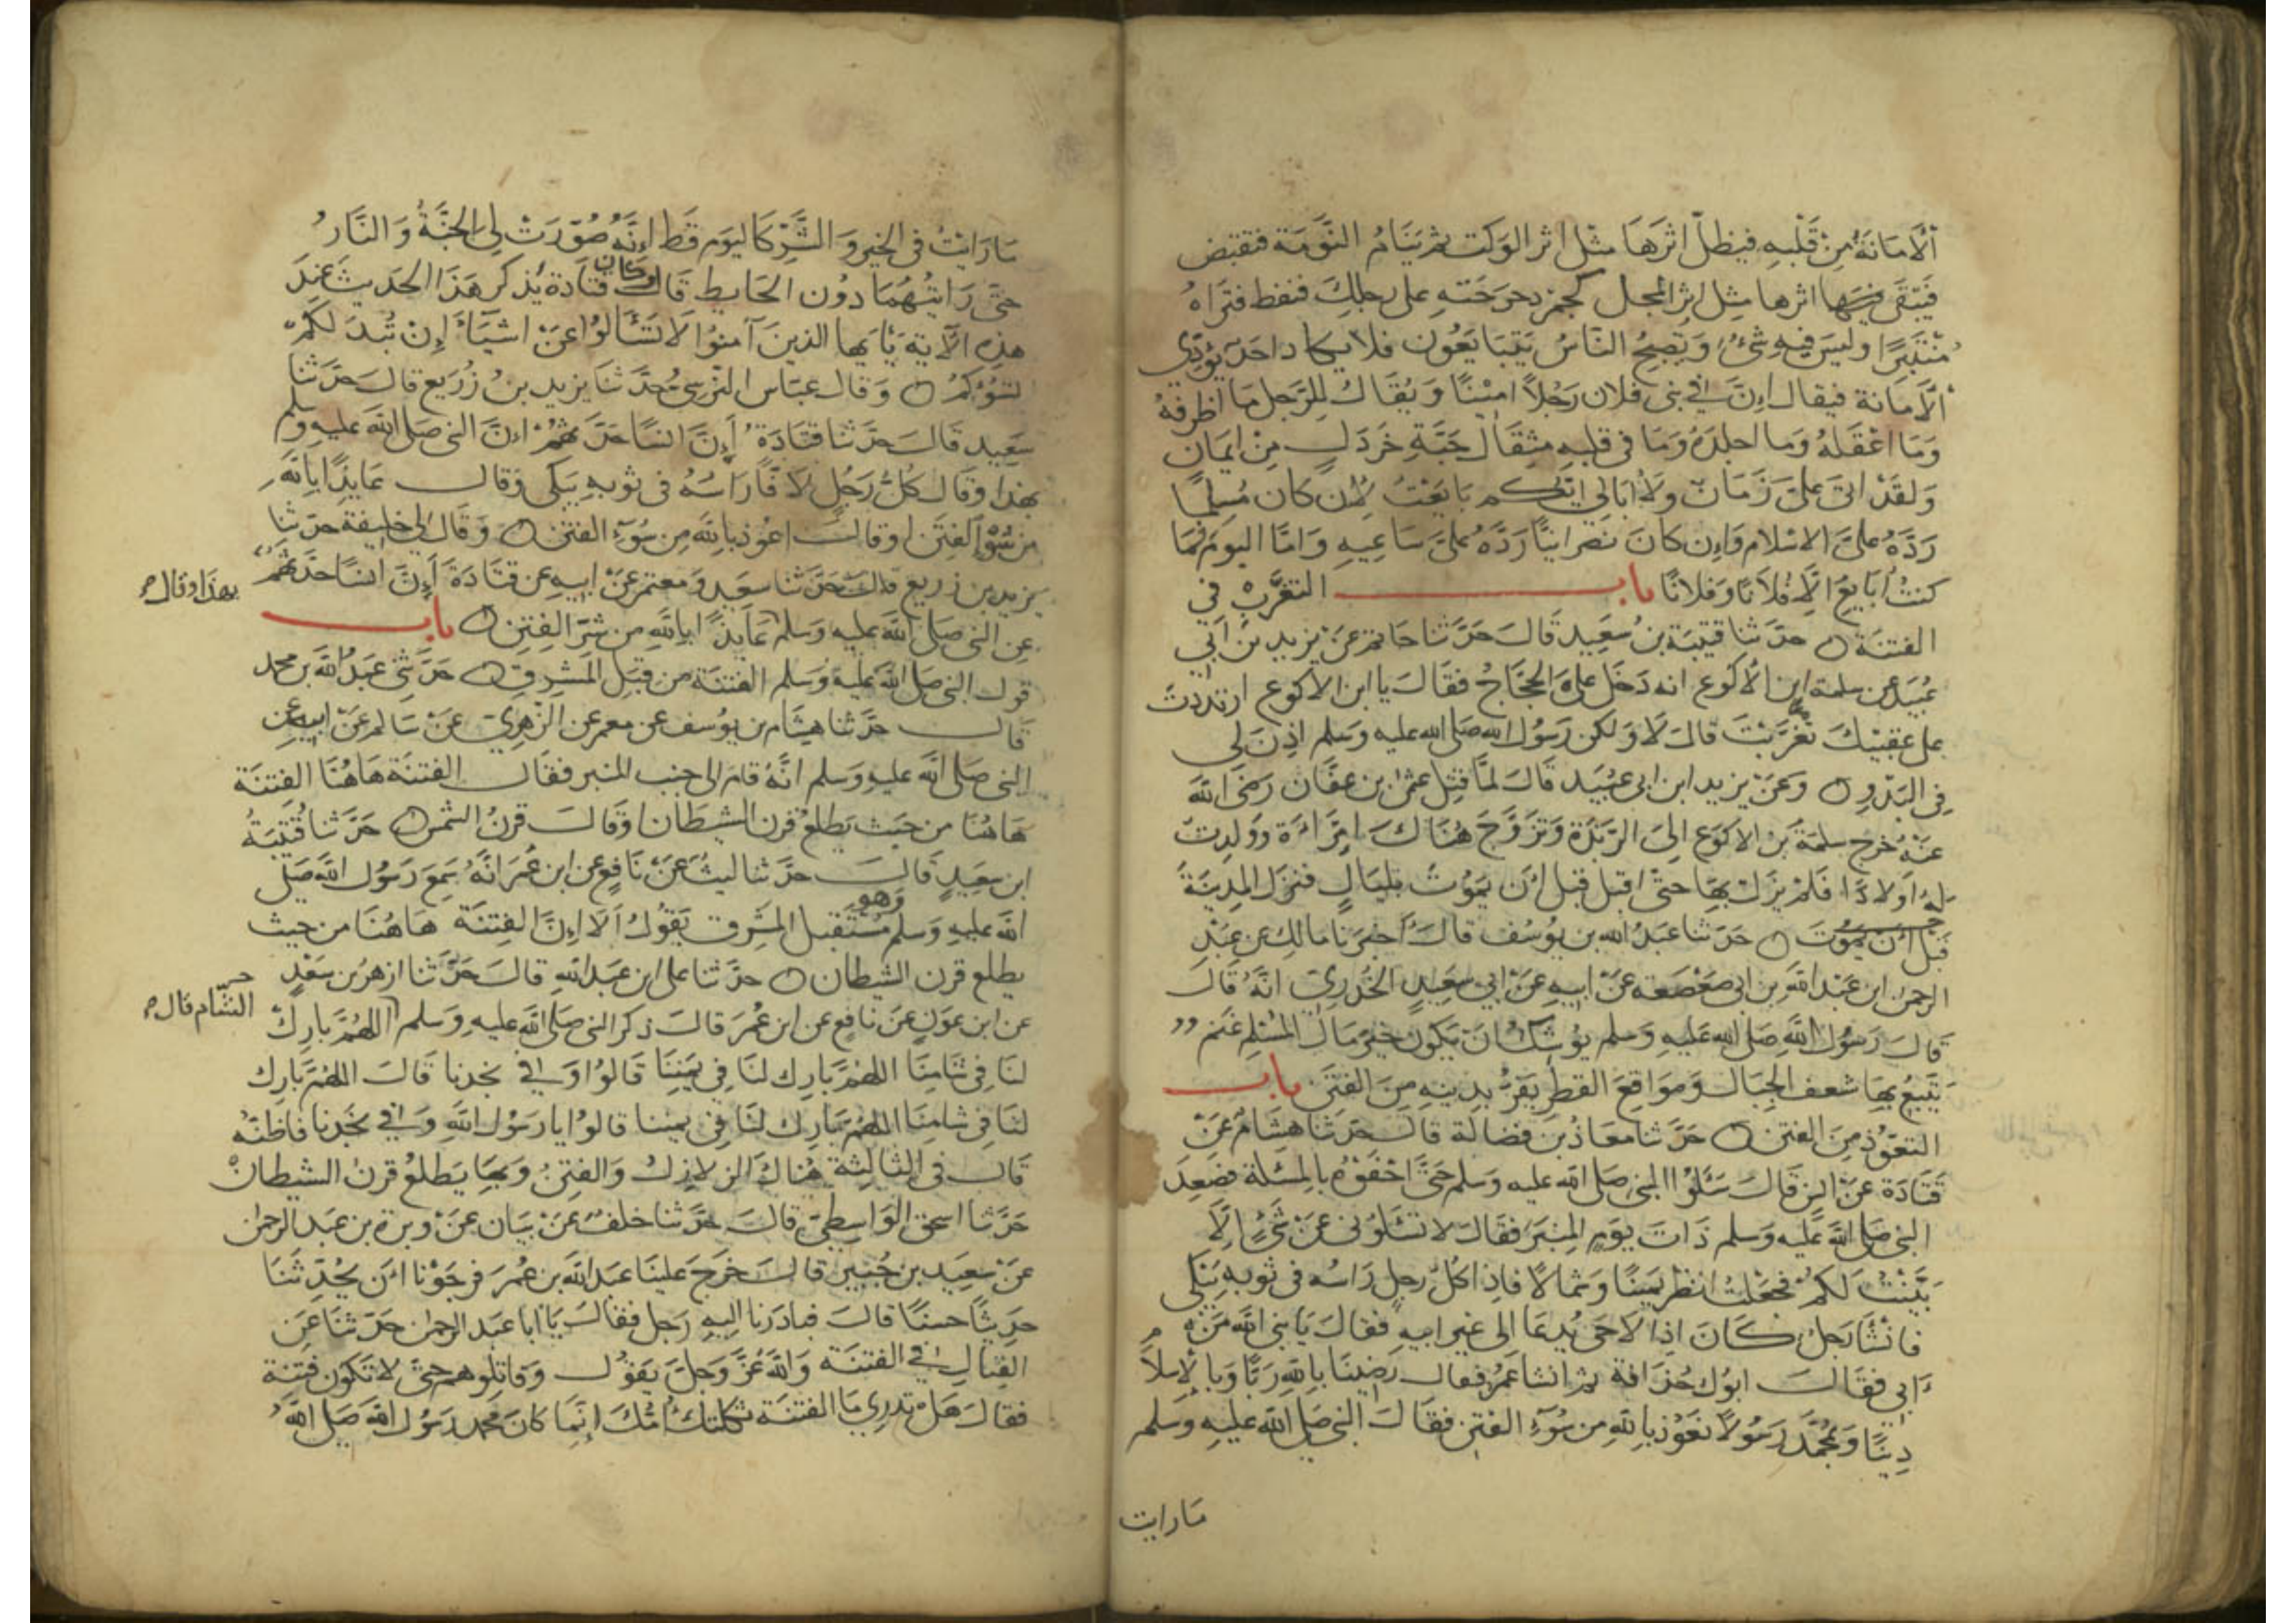 الامانة من قلبه فيظل اثرها مثل اثر الوكت ثم ينام النومة فتقبض
فيبقى فيها اثرها مثل اثر المجل كجمر دحرجته على رجلك فنفط فتراه
منتبرا وليس فيه شئ ويصبح الناس يتبايعون فلا يكاد احد يؤدى
الامانة فيقال ان في بنى فلان رجلا امينا ويقال للرجل ما اظرفه
وما اعقله وما اجلده وما فى قلبه مثقال حبة خردل من ايمان
ولقد اتى على زمان ولا ابالى ايكم بايعت لان كان مسلما
رده على الاسلام وان كان نصرانيا رده على ساعيه واما اليوم فما
كنت ابايع الا فلانا وفلانا باب التغرب في
الفتنة حدثنا قتيبة بن سعيد قال حدثنا حاتم عن يزيد بن ابي
عبيد عن سلمة ابن الاكوع انه دخل على الحجاج فقال يا ابن الاكوع ارتددت
على عقبيك تغربت قال لا ولكن رسول الله صلى الله عليه وسلم اذن لي
فى البدو وعن يزيد ابن ابى عبيد قال لما قتل عثمن بن عفان رضى الله
عنه خرج سلمة بن الاكوع الى الربذة وتزوج هناك امراءة وولدت
له اولادا فلم يزل بها حتى اقبل قبل ان يموت بليال فنزل المدينة
قبل ان يموت حدثنا عبد الله بن يوسف قال اخبرنا مالك عن عبد
الرحمن ابن عبد الله بن ابى صعصعه عن ابيه عن ابي سعيد الخدري انه قال
قال رسول الله صلى الله عليه وسلم يوشك ان يكون خير مال المسلم غنم
يتبع بها شعف الجبال ومواقع القطر يفر بدينه من الفتن باب
التعوذ من الفتن حدثنا معاذ بن فضالة قال حدثنا هشام عن
قتادة عن انس قال سئلوا النبي صلى الله عليه وسلم حتى احفوه بالمسئلة فصعد
النبى صلى الله عليه وسلم ذات يوم المنبر فقال لا تسئلونى عن شئ الا
بينت لكم فجعلت انظر يمينا وشمالا فاذا كل رجل راسه فى ثوبه يبكى
فانشا رجل كان اذا لاحى يدعا الى غير ابيه فقال يا نبى الله من
ابى فقال ابوك حذافة ثم انشا عمر فقال رضينا بالله ربا وبالاسلا م
دينا وبمحمد رسولا نعوذ بالله من سوء الفتن فقال النبي صلى الله عليه وسلم
ما رايت
ما رايت فى الخير والشر كاليوم قط انه صورت لى الجنة والنار
حتى رايتهما دون الحايط قال وكان قتادة يذكر هذا الحديث عند
هذه الآية يا ايها الذين آمنوا لا تسئالوا عن اشياء ان تبد لكم
تسؤكم وقال عباس النرسى حدثنا يزيد بن زريع قال حدثنا
سعيد قال حدثنا قتادة ان انسا حدثهم ان النبى صلى الله عليه وسلم
بهذا وقال كل رجل لافا راسه فى ثوبه يبكى وقال عايذا بالله
من سوء الفتن او قال اعوذ بالله من سوء الفتن وقال لى خليفة حدثنا
يزيد بن زريع قال حدثنا سعيد ومعتمر عن ابيه عن قتادة ان انسا حدثهم
بهذا وقال
عن النبى صلى الله عليه وسلم عايذا بالله من شر الفتن باب
قول النبى صلى الله عليه وسلم الفتنة من قبل المشرق حدثنى عبد الله بن محمد
قال حدثنا هشام بن يوسف عن معمر عن الزهري عن سالم عن ابيه عن
النبى صلى الله عليه وسلم انه قام الى جنب المنبر فقال الفتنة هاهنا الفتنة
هاهنا من حيث يطلع قرن الشيطان او قال قرن الشمس حدثنا قتيبة
ابن سعيد قال حدثنا ليث عن نافع عن ابن عمر انه سمع رسول الله صلى
الله عليه وسلم وهو مستقبل المشرق يقول الا ان الفتنة هاهنا من حيث
يطلع قرن الشيطان حدثنا على ابن عبد الله قال حدثنا ازهر بن سعد
عن ابن عون عن نافع عن ابن عمر قال ذكر النبى صلى الله عليه وسلم اللهم بارك
الشام قال
لنا فى شامنا اللهم بارك لنا فى يمننا قالوا وفي نجدنا قال اللهم بارك
لنا فى شامنا اللهم بارك لنا فى يمننا قالوا يا رسول الله وفي نجدنا فاظنه
قال فى الثالثة هناك الزلازل والفتن وبها يطلع قرن الشيطان
حدثنا اسحق الواسطي قال حدثنا خلف عن بيان عن وبرة بن عبد الرحمن
عن سعيد بن جبير قال خرج علينا عبد الله بن عمر فرجونا ان يحدثنا
حديثا حسنا قال فبادرنا اليه رجل فقال يا ابا عبد الرحمن حدثنا عن
القتال في الفتنة والله عز وجل يقول وقاتلوهم حتى لا تكون فتنة
فقال هل تدري ما الفتنة ثكلتك امك انما كان محمد رسول الله صلى الله